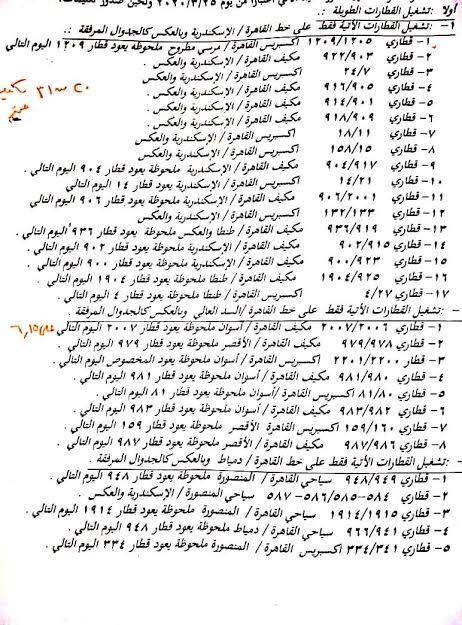 اعتبارا من يوم ٢٠٢٠/٣/٢٥ ولحين صدور
أولا :تشغيل القطارات الطويلة :.
١- :تشغيل القطارات الأتية فقط على خط القاهرة / الإسكندرية وبالعكس كالجداول المرفقة :.
١- قطاري ١٢٠٩/١٢٠٥ إكسبريس القاهرة / مرسي مطروح ملحوظة يعود قطار ١٢٠٩ اليوم التالي
٢- قطاري ٩٢٢/٩٠٣ مكيف القاهرة / الإسكندرية والعكس .
٣- قطاري ٢٤/٧ إكسبريس القاهرة / الإسكندرية والعكس
٤- قطاري ٩١٦/٩٠٥ مكيف القاهرة / الإسكندرية والعكس .
٥- قطاري ٩١٤/٩٠١ مكيف القاهرة / الإسكندرية والعكس .
٦- قطاري ٩١٨/٩٠٩ مكيف القاهرة / الإسكندرية والعكس .
٧- قطاري ١٨/١١ اكسبريس القاهرة / الإسكندرية والعكس
٨- قطاري ١٥٨/١٥ اكسبريس القاهرة / الإسكندرية والعكس
٩- قطاري ٩٠٤/٩١٧ مكيف القاهرة / الإسكندرية ملحوظة يعود قطار ٩٠٤ اليوم التالي .
١٠- قطاري ١٤/٢١ إكسبريس القاهرة / الإسكندرية ملحوظة يعود قطار ١٤ اليوم التالي .
١١- قطاري ٩٠٦/٢٠٠١ مكيف القاهرة / الإسكندرية ملحوظة يعود قطار ٩٠٦ اليوم التالي .
١٢- قطاري ١٣٢/١٣٣ إكسبريس القاهرة / الإسكندرية والعكس
١٣- قطاري ٩٣٦/٩١٩ مكيف القاهرة / طنطا والعكس ملحوظة يعود قطار ٩٣٦ اليوم التالي .
١٤- قطاري ٩٠٢/٩١٥ مكيف القاهرة / الإسكندرية ملحوظة يعود قطار ٩٠٢ اليوم التالي .
١٥- قطاري ٩٠٠/٩٢٣ مكيف القاهرة / الإسكندرية ملحوظة يعود قطار ٩٠٠ اليوم التالي .
١٦- قطاري ١٩٠٤/٩٢٥ مكيف القاهرة / طنطا ملحوظة يعود قطار ١٩٠٤ اليوم التالي .
١٧- قطاري ٤/٢٧ إكسبريس القاهرة / طنطا ملحوظة يعود قطار ٤ اليوم التالي .
- :تشغيل القطارات الأتية فقط على خط القاهرة / السد العالي وبالعكس كالجداول المرفقة :-
١- قطاري ٢٠٠٧/٢٠٠٦ مكيف القاهرة / أسوان ملحوظة يعود قطار ٢٠٠٧ اليوم التالي
٢- قطاري ٩٧٩/٩٧٨ مكيف القاهرة / الأقصر ملحوظة يعود قطار ٩٧٩ اليوم التالي .
٣- قطار ٢٢٠١/٢٢٠٠ اكسبريس القاهرة / أسوان ملحوظة يعود المخصوص اليوم التالي .
٤- قطاري ٩٨١/٩٨٠ مكيف القاهرة / أسوان ملحوظة يعود قطار ٩٨١ اليوم التالي .
٥- قطاري ٨١/٨٠ إكسبريس القاهرة / أسوان ملحوظة يعود قطار ٨١ اليوم التالي .
٦- قطاري ٩٨٣/٩٨٢ مكيف القاهرة / أسوان ملحوظة يعود قطار ٩٨٣ اليوم التالي .
٧- قطاري ١٥٩/١٦٠ إكسبريس القاهرة الأقصر ملحوظة يعود قطار ١٥٩ اليوم التالي .
٨- قطاري ٩٨٧/٩٨٦ مكيف القاهرة / الأقصر ملحوظة يعود قطار ٩٨٧ اليوم التالي .
- :تشغيل القطارات الأتية فقط على خط القاهرة / دمياط وبالعكس كالجداول المرفقة :-
١- قطاري ٩٤٨/٩٤٩ سياحي القاهرة / المنصورة ملحوظة يعود قطار ٩٤٨ اليوم التالي .
٢- قطاري ٥٨٤-٥٨٦/٥٨٥-٥٨٧ سياحي المنصورة / الإسكندرية والعكس .
٣- قطاري ١٩١٤/١٩١٥ سياحي القاهرة / المنصورة ملحوظة يعود قطار ١٩١٤ اليوم التالي .
٤- قطاري ٩٦٦/٩٤١ سياحي القاهرة / دمياط ملحوظة يعود قطار ٩٤٨ اليوم التالي .
٥- قطاري ٣٣٤/٣٤١ اكسبريس القاهرة / المنصورة ملحوظة يعود قطار ٣٣٤ اليوم التالي .